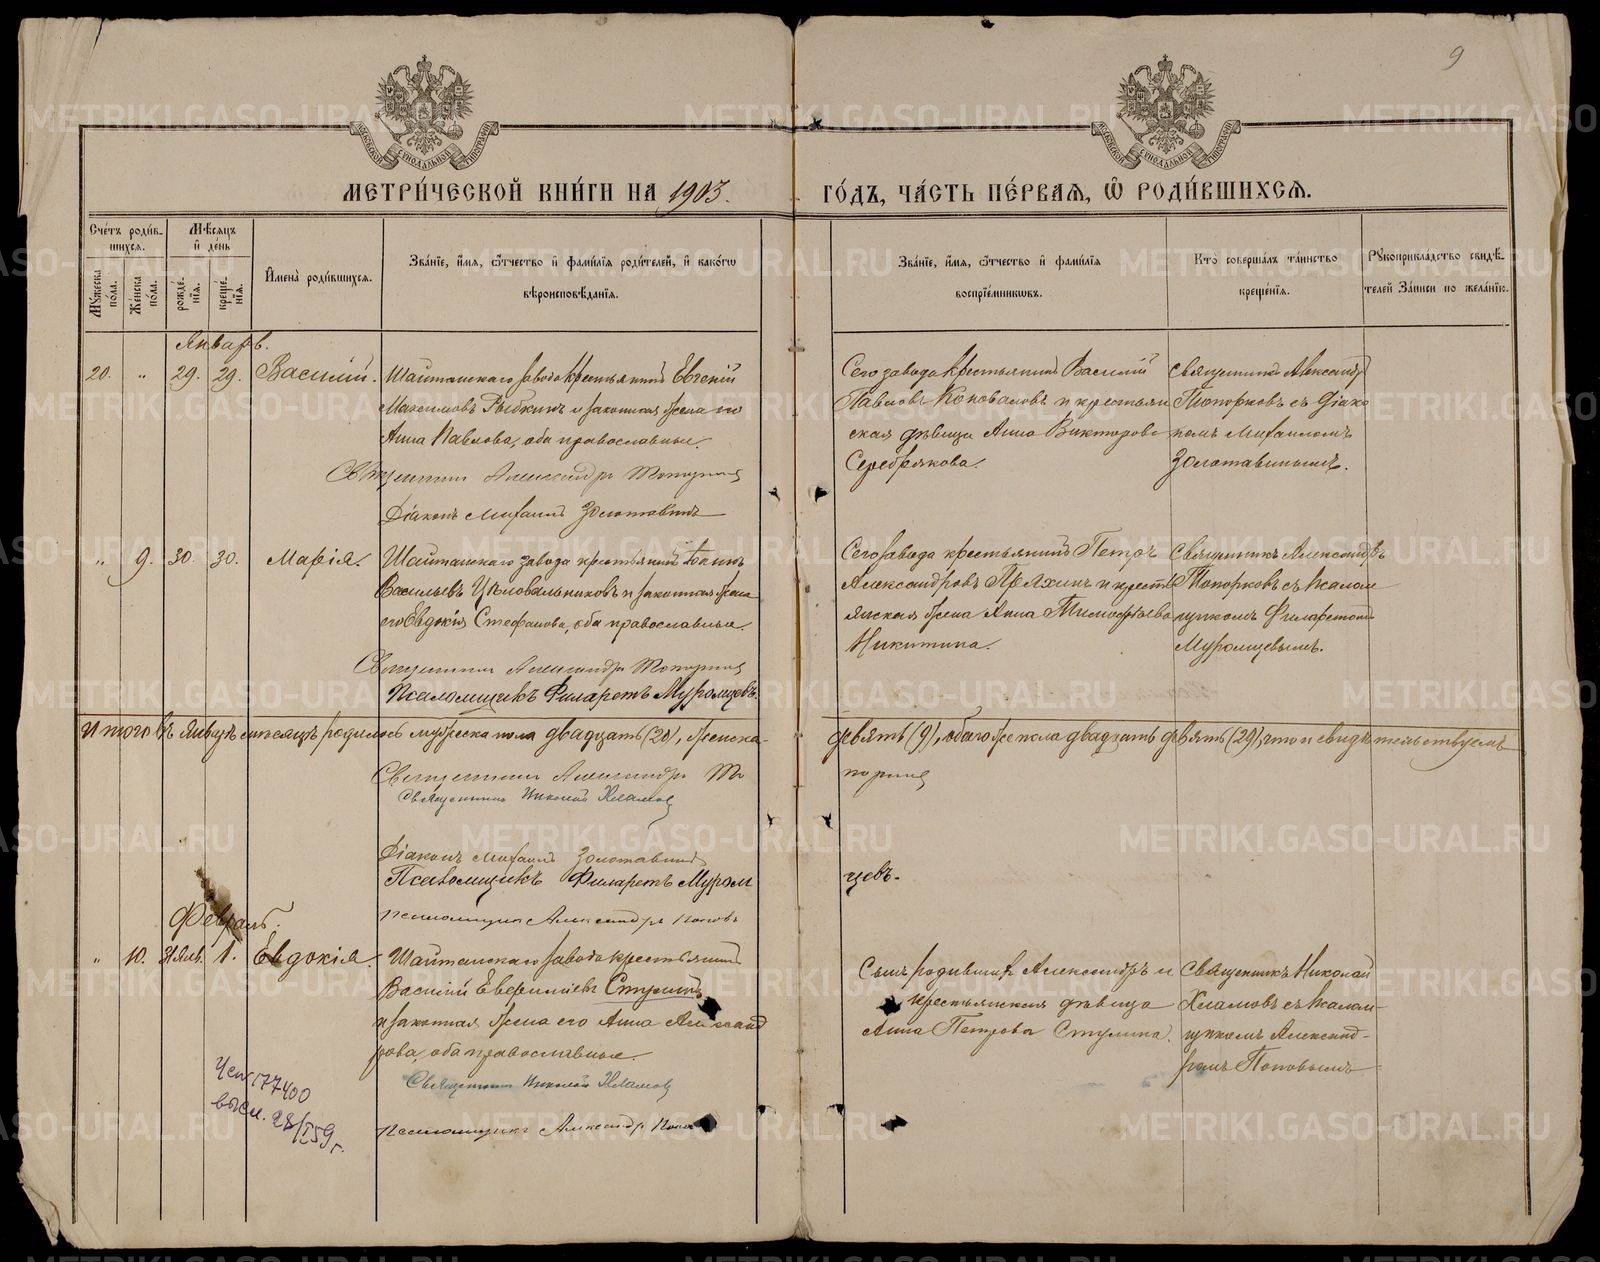 9
МЕТРИ́ЧЕСКОЙ КНИ́ГИ НА 1903. ГО́ДЪ, ЧА́СТЬ ПЕ́РВАЯ, Ѡ РОДИ́ВШИХСЯ.
Сче́тъ роди́в-
шихся.
Му́жеска по́ла.
Же́нска по́ла.
Мѣ́сяцъ
и де́нь
рожде́-
нія.
креще́-
нія.
Имена̀ роди́вшихся.
Зва́ніе, и́мя, ѻ́тчество и фами́лія роди́телей, и како́гѡ
вѣроисповѣ́данія.
Зва́ніе, и́мя, ѻ́тчество и фами́лія
воспрїе́мниковъ.
Кто̀ соверша́лъ та́инство
креще́нія.
Рукоприкла́дство свидѣ́-
телей за́писи по жела́нію.
Январь.
20. " 29. 29. Василій.
Шайтанскаго завода крестьянинъ Евгеній
Максимовъ Рыбкинъ и законная жена его
Анна Павлова, оба православные.
Священникъ Александръ Топорковъ
Діаконъ Михаилъ Золотавинъ
Сего завода крестьянинъ Василій
Павловъ Коноваловъ и крестьян
ская дѣвица Анна Викторова
Серебрякова.
Священникъ Александръ
Топорковъ съ діако
номъ Михаиломъ
Золотавинымъ.
" 9. 30. 30. Марія.
Шайтанскаго завода крестьянинъ
Васильевъ Цѣловальниковъ и законная жена
его Евдокія Стефанова, оба православные.
Священникъ Александръ Топорковъ
Псаломщикъ Филаретъ Муромцевъ.
Сего завода крестьянинъ Петръ
Александровъ Пряхинъ и кресть
янская жена Анна Тимофѣева
Никитина.
Священникъ Александръ
Топорковъ съ псалом
щикомъ Филаретомъ
Муромцевымъ.
Итого въ Январѣ мѣсяцѣ родилось мужеска пола двадцать (20), женска-
девять (9), обоего же пола двадцать девять (29), что и свидѣтельствуемъ
Священникъ Александръ То
порковъ
Священникъ Николай Хламовъ
Діаконъ Михаилъ Золотавинъ
Псаломщикъ Филаретъ Муром
цевъ.
Псаломщикъ Александръ Поповъ
Февраль.
" 10. 31 Янв. 1. Евдокія.
Шайтанскаго завода крестьянинъ
Василій Евфиміевъ Стулинъ
и законная жена его Анна Александ
рова, оба православные.
Священникъ Николай Хламовъ
Псаломщикъ Александръ Поповъ
Сынъ родившій Александръ и
крестьянская дѣвица
Анна Петрова Стулина.
Священникъ Николай
Хламовъ съ псалом-
щикомъ Александ-
ромъ Поповымъ
177400
высл. 28/I 59 г.
METRIKI.GASO-URAL.RU